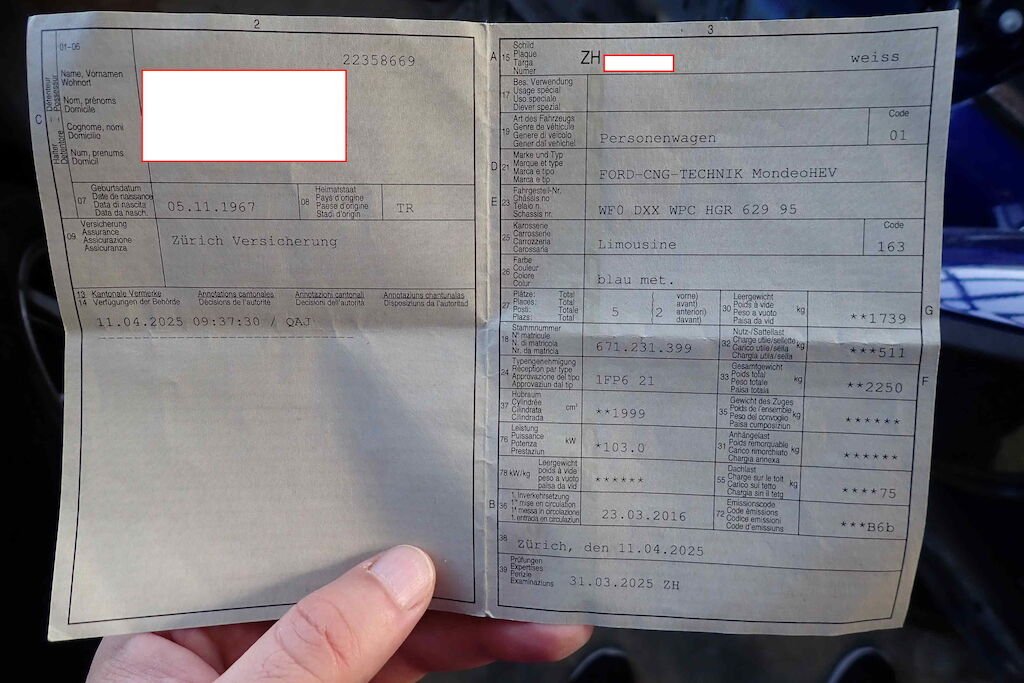 2
01-06
22358669
C
Détenteur
Possessur
Halter
Detentore
Name, Vornamen
Wohnort
Nom, prénoms
Domicile
Cognome, nomi
Domicilio
Num, prenums
Domicil
07
Geburtsdatum
Date de naissance
Data di nascita
Data da nasch.
05.11.1967
08
Heimatstaat
Pays d'origine
Paese d'origine
Stadi d'origin
TR
09
Versicherung
Assurance
Assicurazione
Assicuranza
Zürich Versicherung
13 Kantonale Vermerke Annotations cantonales Annotazioni cantonali Annotaziuns chantunalas
14 Verfügungen der Behörde Décisions de l'autorité Decisioni dell'autorità Disposiziuns da l'autoritad
11.04.2025 09:37:30 / QAJ
3
A 15
Schild
Plaque
Targa
Numer
ZH
weiss
17
Bes. Verwendung
Usage spécial
Uso speciale
Diever spezial
19
Art des Fahrzeugs
Genre de véhicule
Genere di veicolo
Gener dal vehichel
Personenwagen
Code
01
D 21
Marke und Typ
Marque et type
Marca e tipo
Marca e tip
FORD-CNG-TECHNIK MondeoHEV
E 23
Fahrgestell-Nr.
Châssis no
Telaio n.
Schassis nr.
WF0 DXX WPC HGR 629 95
25
Karosserie
Carrosserie
Carrozzeria
Carossaria
Limousine
Code
163
26
Farbe
Couleur
Colore
Colur
blau met.
27
Plätze: Total
Places: Total
Posti: Totale
Plazs: Total
5
(2
vorne)
avant)
anteriori)
davant)
30
Leergewicht
Poids à vide
Peso a vuoto
Paisa da vid
kg
**1739
G
18
Stammnummer
N° matricule
N. di matricola
Nr. da matricla
671.231.399
32
Nutz-/Sattellast
Charge utile/sellette
Carico utile/sella
Chargia utila/sella
kg
***511
24
Typengenehmigung
Réception par type
Approvazione del tipo
Approvaziun dal tip
1FP6 21
33
Gesamtgewicht
Poids total
Peso totale
Paisa totala
kg
**2250
F
37
Hubraum
Cylindrée
Cilindrata
Cilindrada
cm³
**1999
35
Gewicht des Zuges
Poids de l'ensemble
Peso del convoglio
Paisa cumposiziun
kg
******
76
Leistung
Puissance
Potenza
Prestaziun
kW
*103.0
31
Anhängelast
Poids remorquable
Carico rimorchiato
Chargia annexa
kg
******
78 kW/kg
Leergewicht
poids à vide
peso a vuoto
paisa da vid
******
55
Dachlast
Charge sur le toit
Carico sul tetto
Chargia sin il tetg
kg
****75
B 36
1. Inverkehrsetzung
1re mise en circulation
1a messa in circolazione
1. entrada en circulaziun
23.03.2016
72
Emissionscode
Code émissions
Codice emissioni
Code d'emissiuns
***B6b
38
Zürich, den 11.04.2025
39
Prüfungen
Expertises
Perizie
Examinaziuns
31.03.2025 ZH